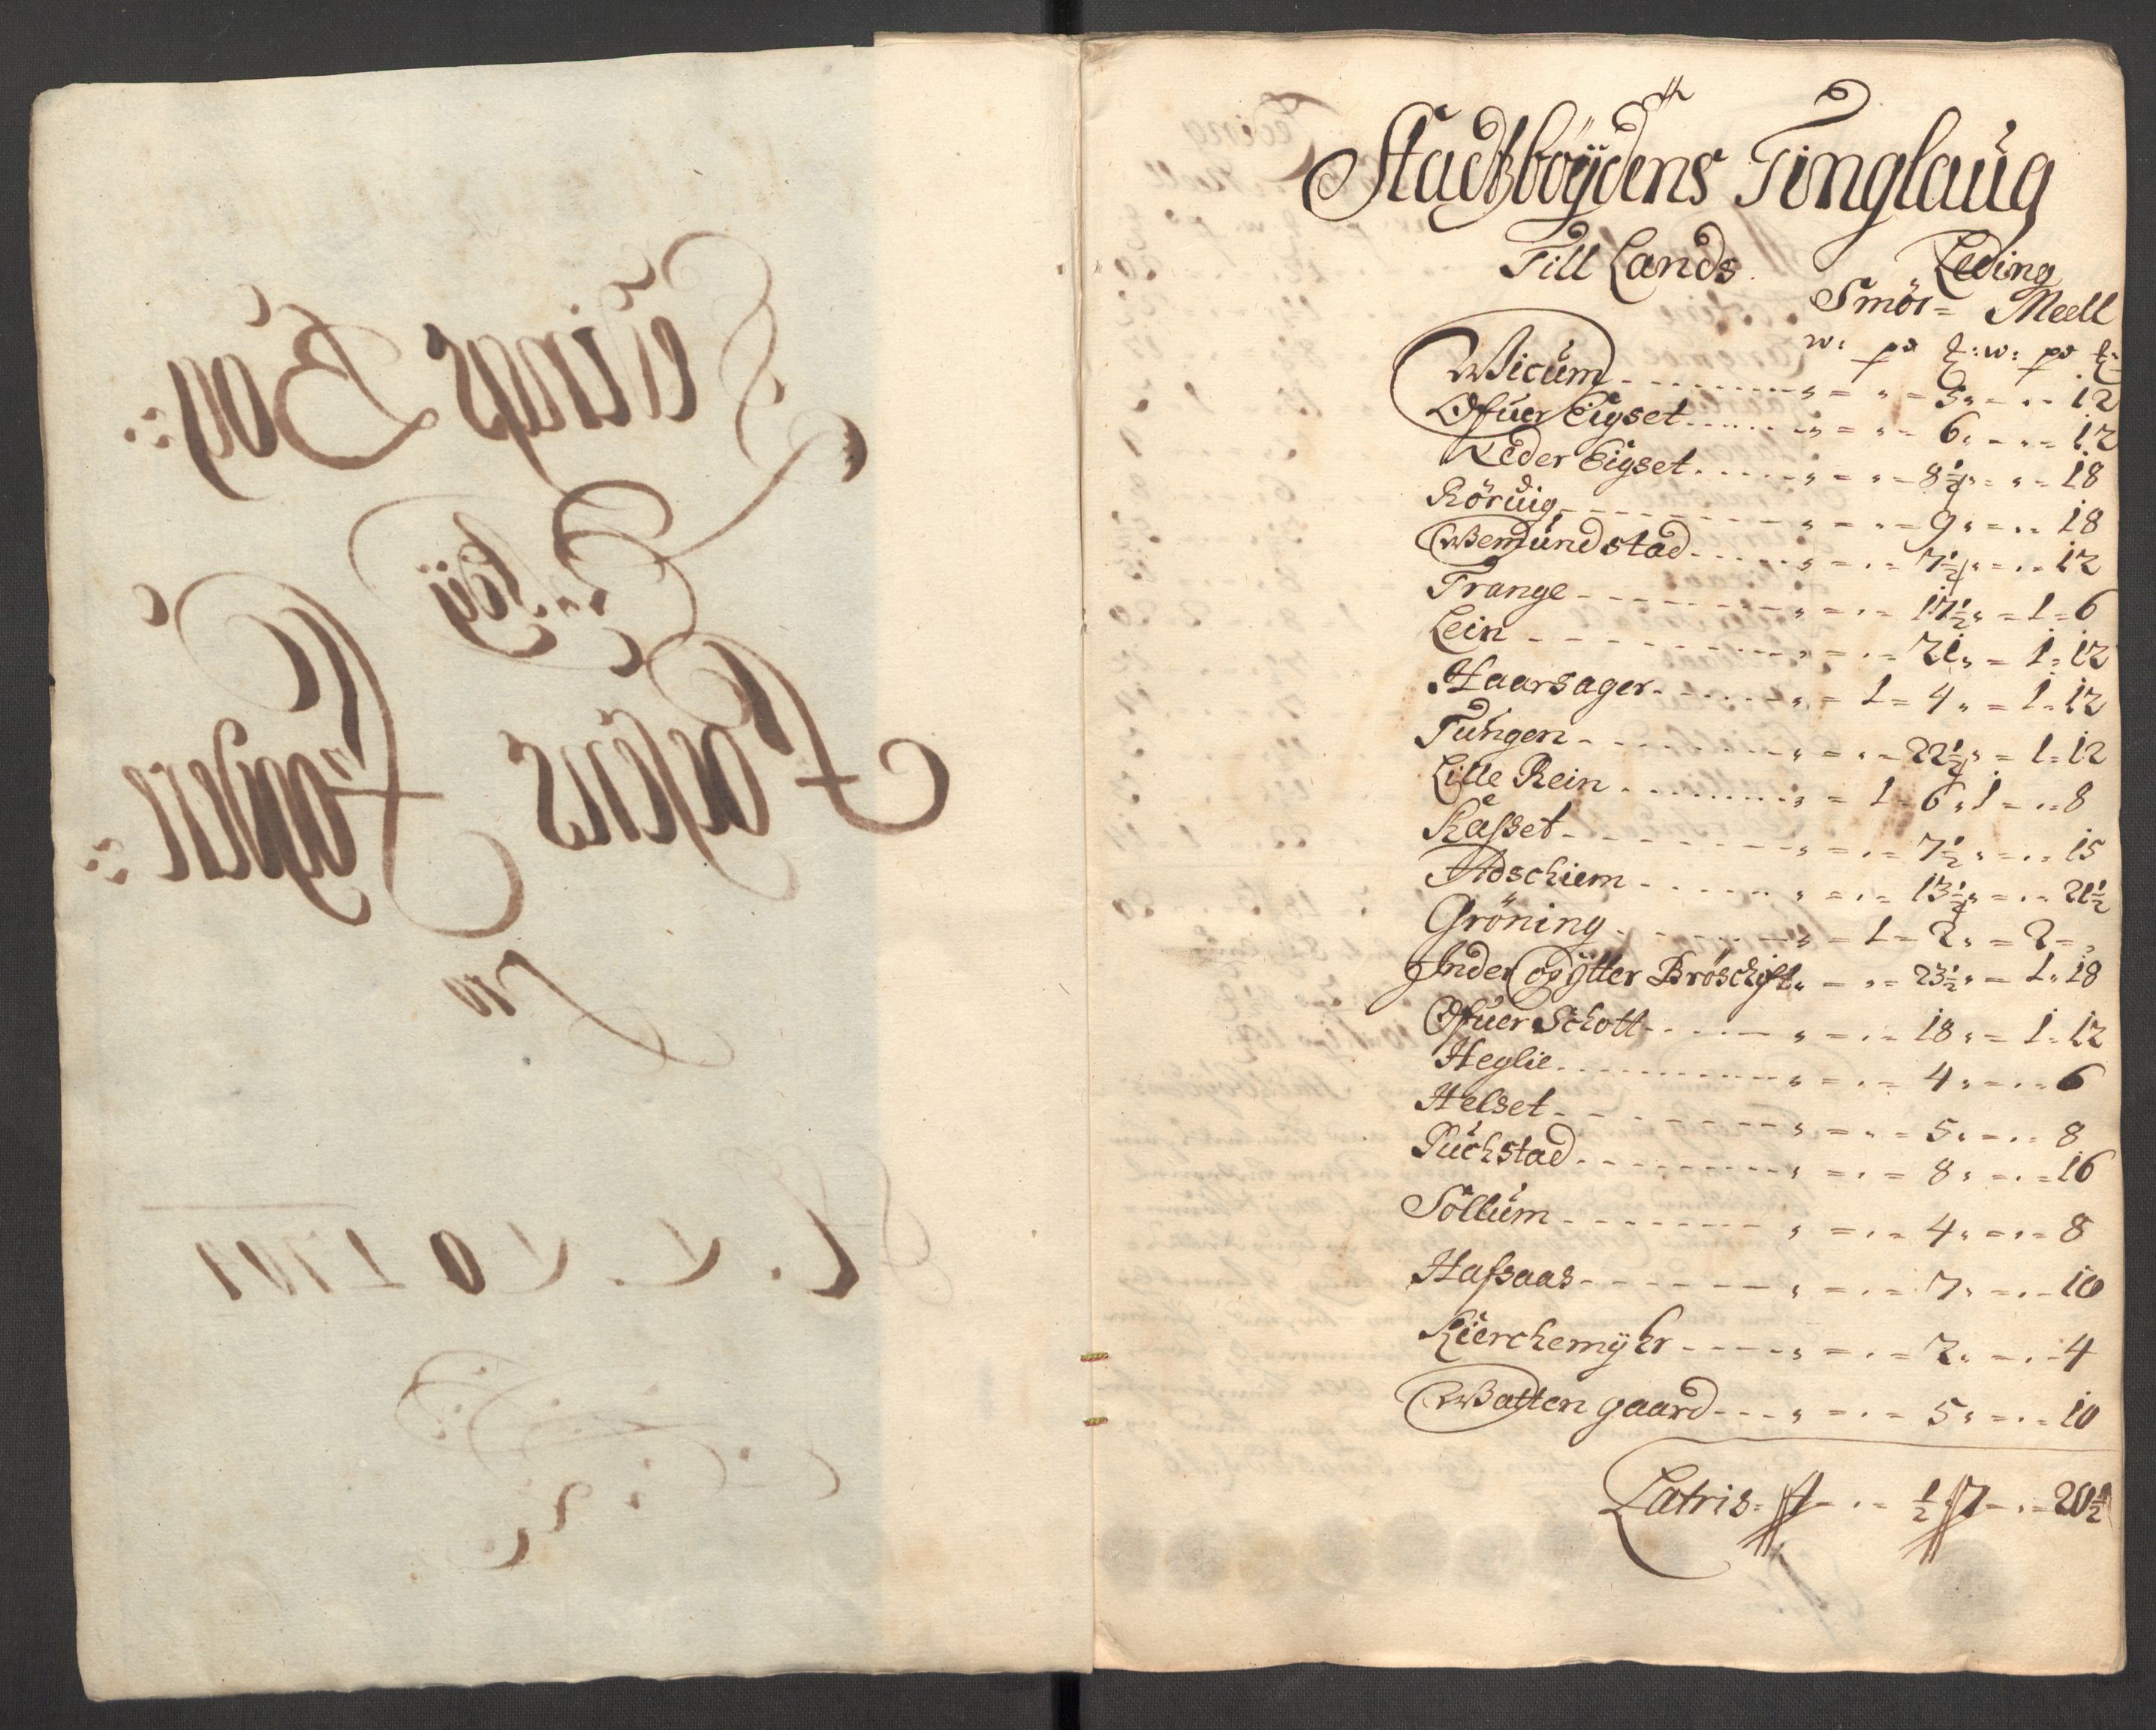 Ledings Bog
Stadtzböÿdens Tinglaug
Till Lands
Leding
Smör = Meell
w: pd ℔: w: pd ℔:
Wicum - - - „ = „ = 5 „ = „ = 12
Ofuer Eigset - - - „ = „ = 6 „ = „ = 12
Neder Eigset - - - „ = „ = 8½ „ = „ = 18
Rörvig - - - „ = „ = 9 „ = „ = 18
Wemundstad - - - „ = „ = 7½ „ = „ = 12
Trange - - - „ = „ = 17½ „ = 1 = 6
Lein - - - „ = „ = 21 „ = 1 = 12
Haarsager - - - „ = 1 = 4 „ = 1 = 12
Tungen - - - „ = „ = 22½ „ = 1 = 12
Lille Rein - - - „ = 1 = 6 „ 1 = „ = 8
Rasset - - - „ = „ = 7½ „ = „ = 15
Adschiem - - - „ = „ = 13½ „ = „ = 21½
Gröning - - - „ = 1 = 2 „ = 2 = „
Inder og ÿtter Bröschift „ = „ = 23½ „ = 1 = 18
Ofuer Schott - - - „ = „ = 18 „ = 1 = 12
Heglie - - - „ = „ = 4 „ = „ = 6
Helset - - - „ = „ = 5 „ = „ = 8
Puchstad - - - „ = „ = 8 „ = „ = 16
Söllum - - - „ = „ = 4 „ = „ = 8
Hafsaas - - - „ = „ = 7 „ = „ = 10
Kierchemÿhr - - - „ = „ = 2 „ = „ = 4
Watten gaard - - - „ = „ = 5 „ = „ = 10
Latris = 4 = „ = ½ „ 7 = „ = 20½